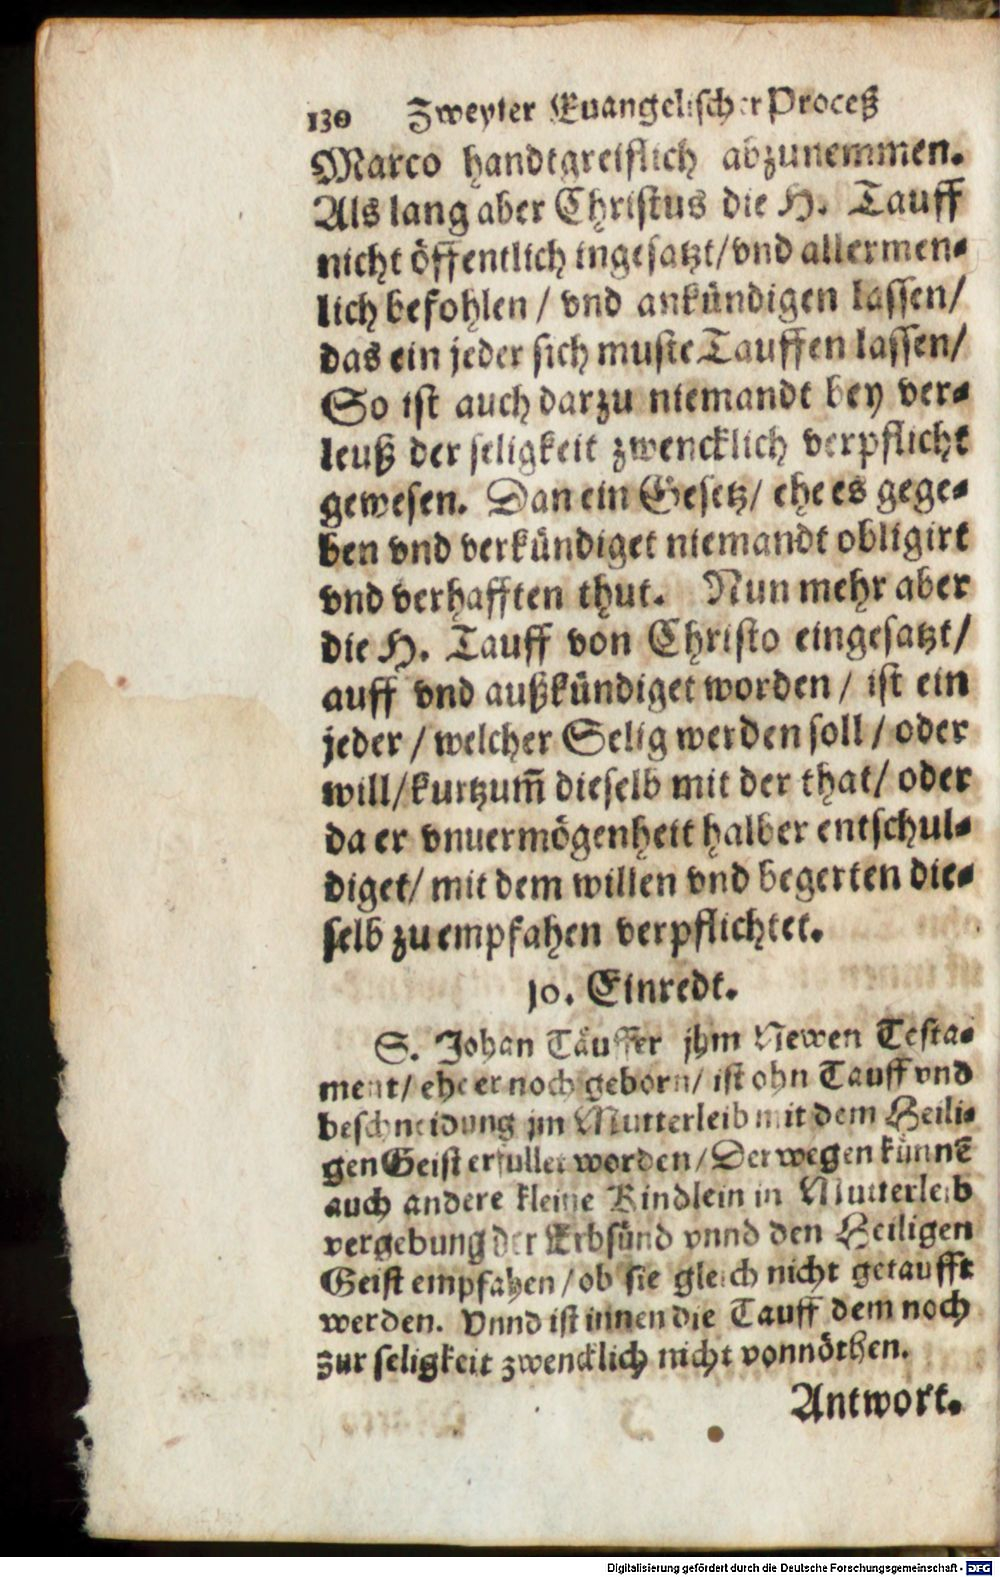 130 Zweyter Euangelischer Proceß
Marco handtgreifflich abzunemmen.
Als lang aber Christus die H. Tauff
nicht öffentlich ingesatzt/vnd allermen-
lich befohlen / vnd ankündigen lassen/
das ein jeder sich muste Tauffen lassen/
So ist auch darzu niemandt bey ver-
leuß der seligkeit zwencklich verpflicht
gewesen. Dan ein Gesetz/ ehe es gege-
ben vnd verkündiget niemandt obligirt
vnd verhafften thut. Nun mehr aber
die H. Tauff von Christo eingesatzt/
auff vnd außkündiget worden / ist ein
jeder / welcher Selig werden soll / oder
will/kurtzum̃ dieselb mit der that/ oder
da er vnuermögenheit halber entschul-
diget/ mit dem willen vnd begerten die-
selb zu empfahen verpflichtet.
10. Einredt.
S. Johan Täuffer jhm Newen Testa-
ment/ ehe er noch geborn/ ist ohn Tauff vnd
beschneidung jm Mutterleib mit dem Heili-
gen Geist erfullet worden/Derwegen künnẽ
auch andere kleine Kindlein in Mutterleib
vergebung der Erbsünd vnnd den Heiligen
Geist empfahen / ob sie gleich nicht getaufft
werden. Vnnd ist innen die Tauff dem noch
zur seligkeit zwencklich nicht vonnöthen.
Antwort.
Digitalisierung gefördert durch die Deutsche Forschungsgemeinschaft - DFG